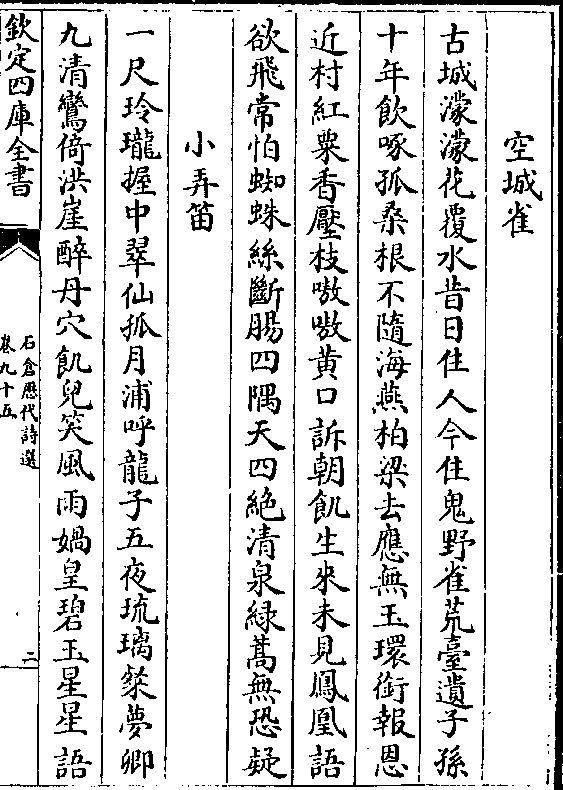 空城雀
古城濛濛花覆水昔日住人今住鬼野雀荒臺遺子孫
十年飲啄孤桑根不隨海燕柏梁去應無玉環銜報恩
近村紅粟香壓枝嗷嗷黄口訴朝飢生來未見鳳凰語
欲飛常怕蜘蛛絲斷腸四隅天四絶清泉緑蒿無恐疑
小弄笛
一尺玲瓏握中翠仙孤月浦呼龍子五夜琉璃粲夢卿
九清鸞倚洪崖醉丹穴飢兒笑風雨媧皇碧玉星星語
欽定四庫全書
石倉歷代詩選
卷九十五
二